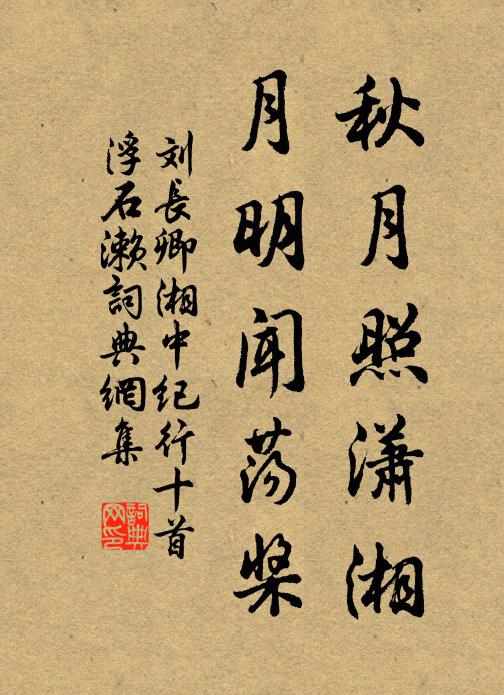 秋月照潇湘
月明闻荡桨
刘長卿湘中纪行十首
浮石濑詞典網集
詞典網印